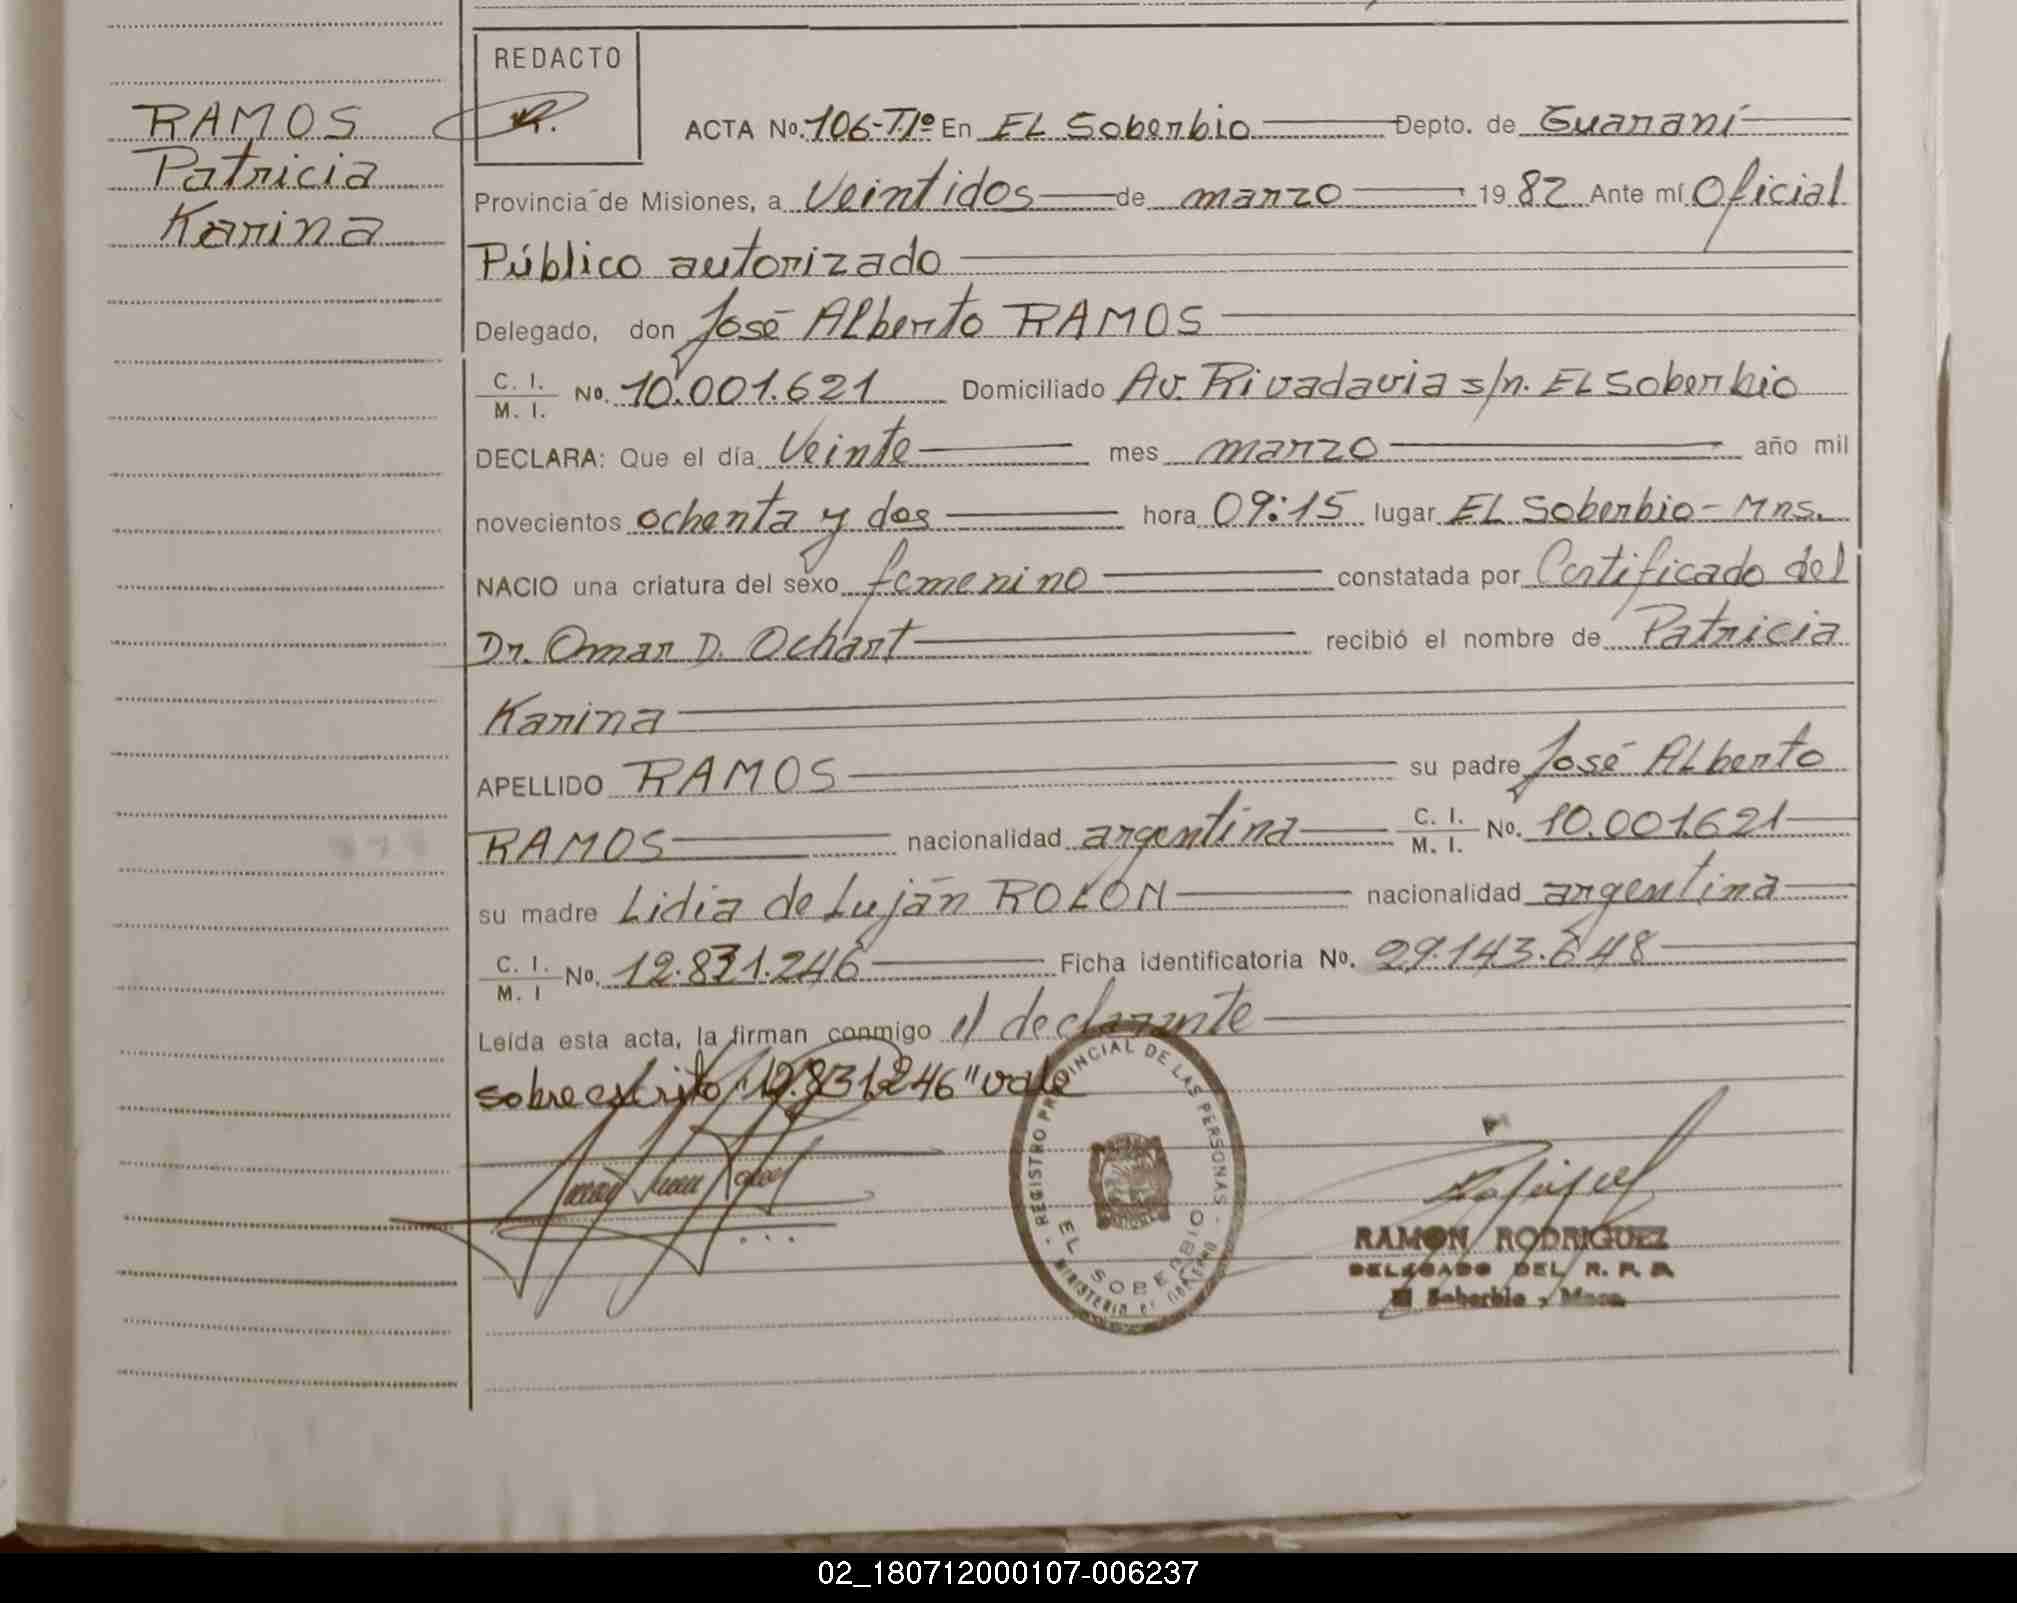 RAMOS
Patricia
Karina
REDACTO
ACTA No. 106-Tº1º En EL Soberbio Depto. de Guaraní
Provincia de Misiones, a Veintidos de marzo 1982 Ante mí Oficial
Público autorizado
Delegado, don José Alberto RAMOS
C. I.
M. I. No. 10.001.621 Domiciliado Av. Rivadavia s/n. EL Soberbio
DECLARA: Que el día Veinte mes marzo año mil
novecientos ochenta y dos hora 09:15 lugar EL Soberbio - Mns.
NACIO una criatura del sexo femenino constatada por Certificado del
Dr. Omar D. Ochart recibió el nombre de Patricia
Karina
APELLIDO RAMOS su padre José Alberto
RAMOS nacionalidad argentina C. I. M. I. No. 10.001.621
su madre Lidia de Luján ROLON nacionalidad argentina
C. I.
M. I No. 12.831.246 Ficha identificatoria No. 29.143.648
Leída esta acta, la firman conmigo el declarante
sobreescrito "12.831.246" vale
REGISTRO PROVINCIAL DE LAS PERSONAS
EL SOBERBIO
MINISTERIO DE GOBIERNO
RAMON RODRIGUEZ
DELEGADO DEL R. P. P.
El Soberbio, Mnes.
02_180712000107-006237